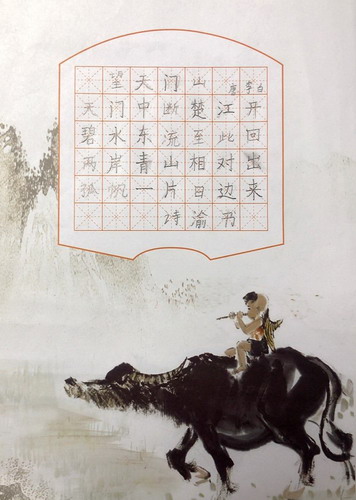 望天门山 唐 李白
天门中断楚江开
碧水东流至此回
两岸青山相对出
孤帆一片日边来
诗渝书